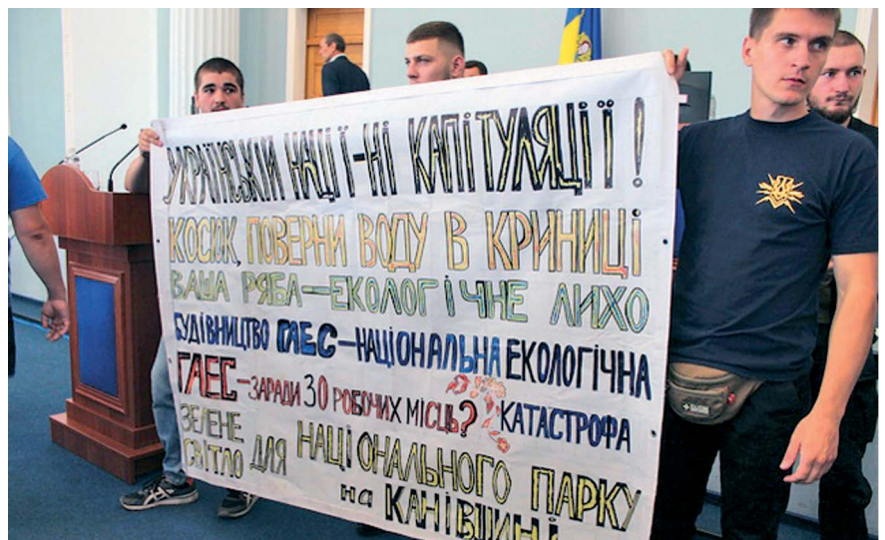 УКРАЇНСЬКІЙ НАЦІЇ-НІ КАПІТУЛЯЦІЇ!
КОСЮК, ПОВЕРНИ ВОДУ В КРИНИЦІ
ВАША РЯБА—ЕКОЛОГІЧНЕ ЛИХО
БУДІВНИЦТВО ГАЕС—НАЦІОНАЛЬНА ЕКОЛОГІЧНА
КАТАСТРОФА
ГАЕС-ЗАРАДИ 30 РОБОЧИХ МІСЦЬ?
ЗЕЛЕНЕ
СВІТЛО ДЛЯ НАЦІОНАЛЬНОГО ПАРКУ
на КАНІВЩИНІ